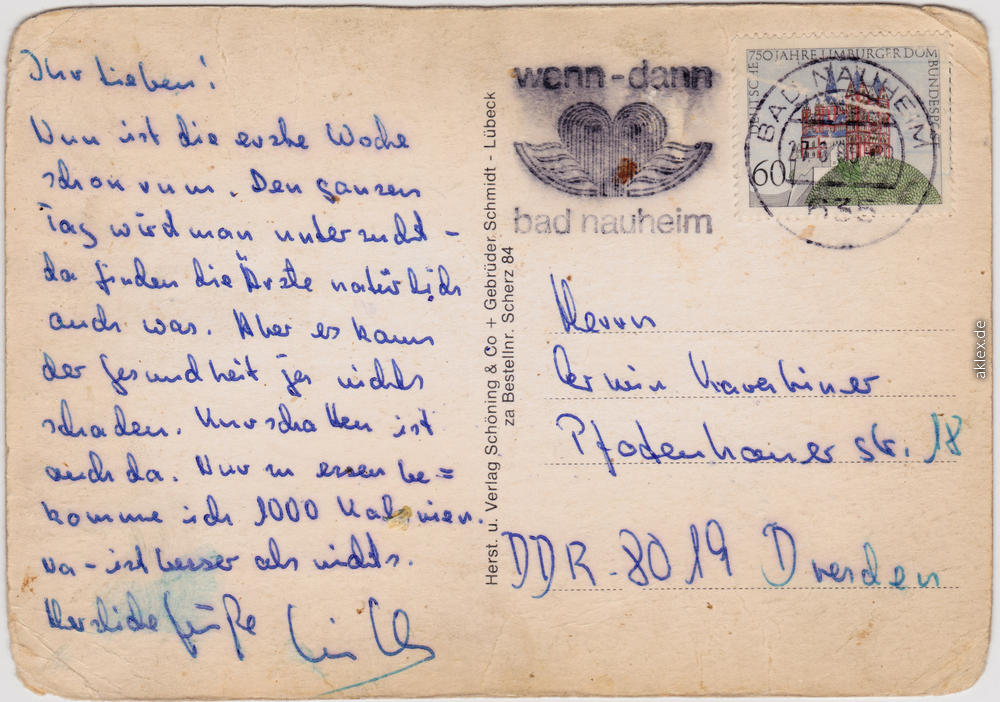 Ihr Lieben!
Nun ist die erste Woche
schon rum. Den ganzen
Tag wird man untersucht -
da finden die Ärzte natürlich
auch was. Aber es kann
der Gesundheit ja nichts
schaden. Kurschatten ist
auch da. Nur zu essen be=
komme ich 1000 Kalorien.
na - ist besser als nichts.
Herzliche Grüße
Herst. u. Verlag Schöning & Co + Gebrüder Schmidt - Lübeck
za Bestellnr. Scherz 84
wenn-dann
bad nauheim
750 JAHRE LIMBURGER DOM
DEUTSCHE BUNDESPOST
60
BAD NAUHEIM
635
Herrn
Pfotenhauer str. 18
DDR - 8019 Dresden
aklex.de